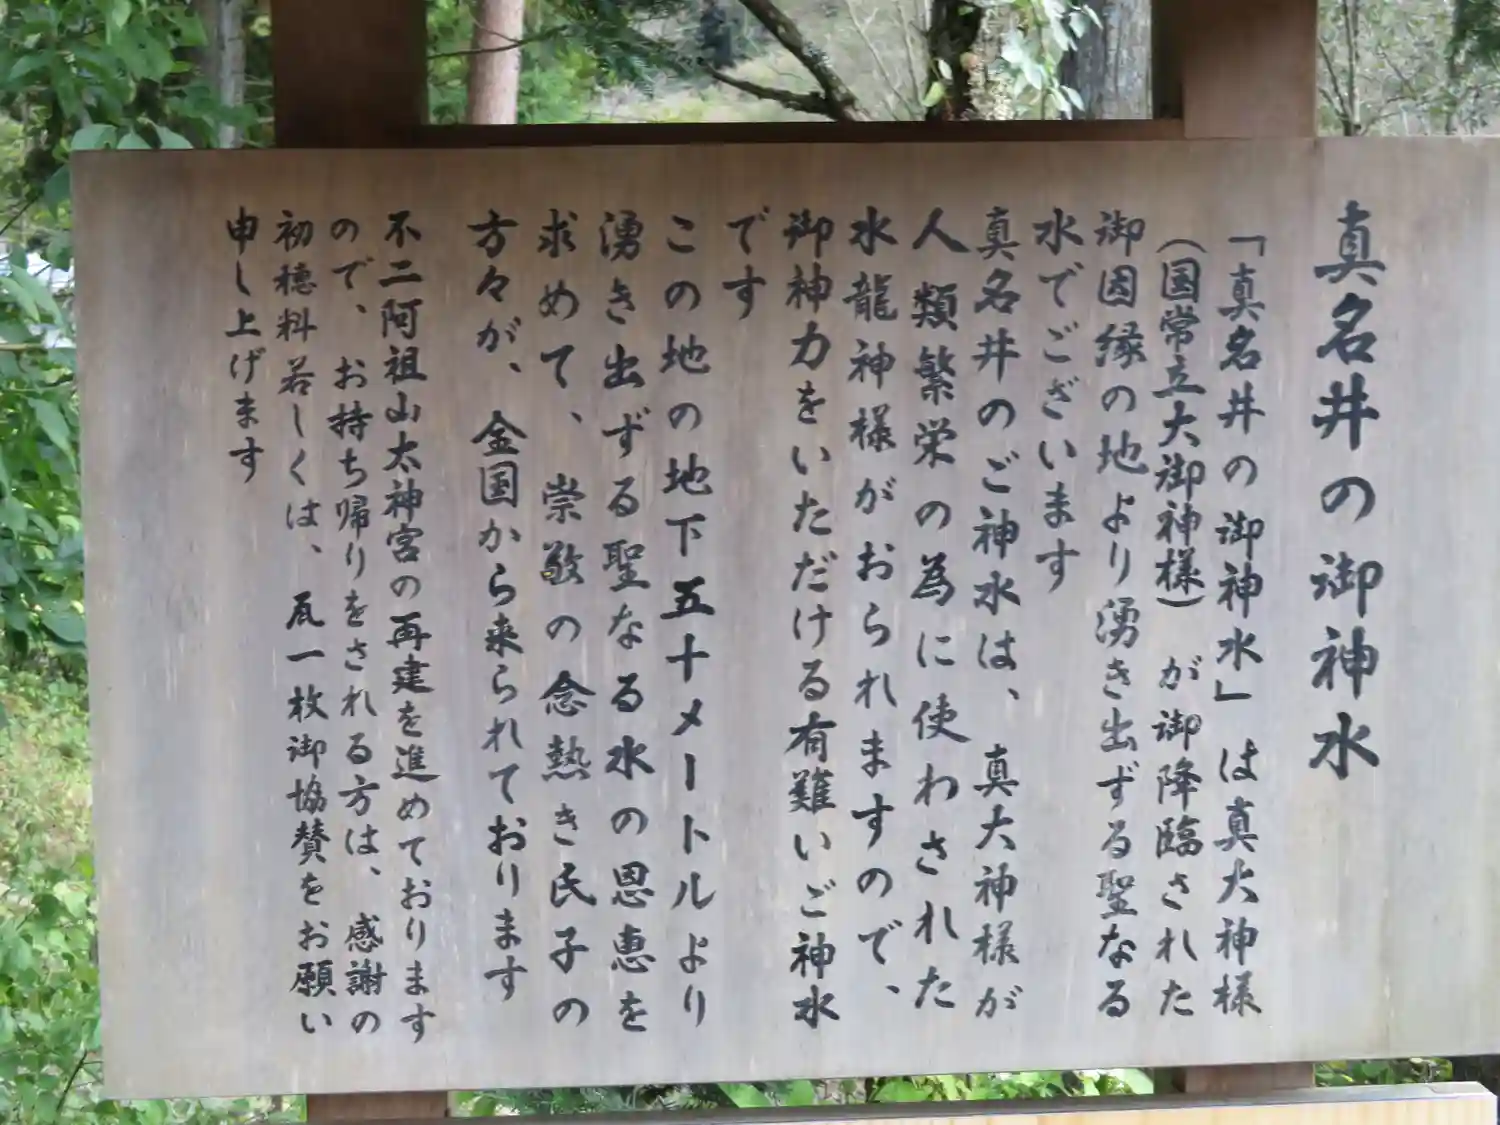 真名井の御神水
「真名井の御神水」は真大神様
（国常立大御神様）が御降臨された
御因縁の地より湧き出ずる聖なる
水でございます
真名井のご神水は、真大神様が
人類繁栄の為に使わされた
水龍神様がおられますので、
御神力をいただける有難いご神水
です
この地の地下五十メートルより
湧き出ずる聖なる水の恩恵を
求めて、崇敬の念熱き民子の
方々が、全国から来られております
不二阿祖山太神宮の再建を進めております
ので、お持ち帰りをされる方は、感謝の
初穂料若しくは、瓦一枚御協賛をお願い
申し上げます